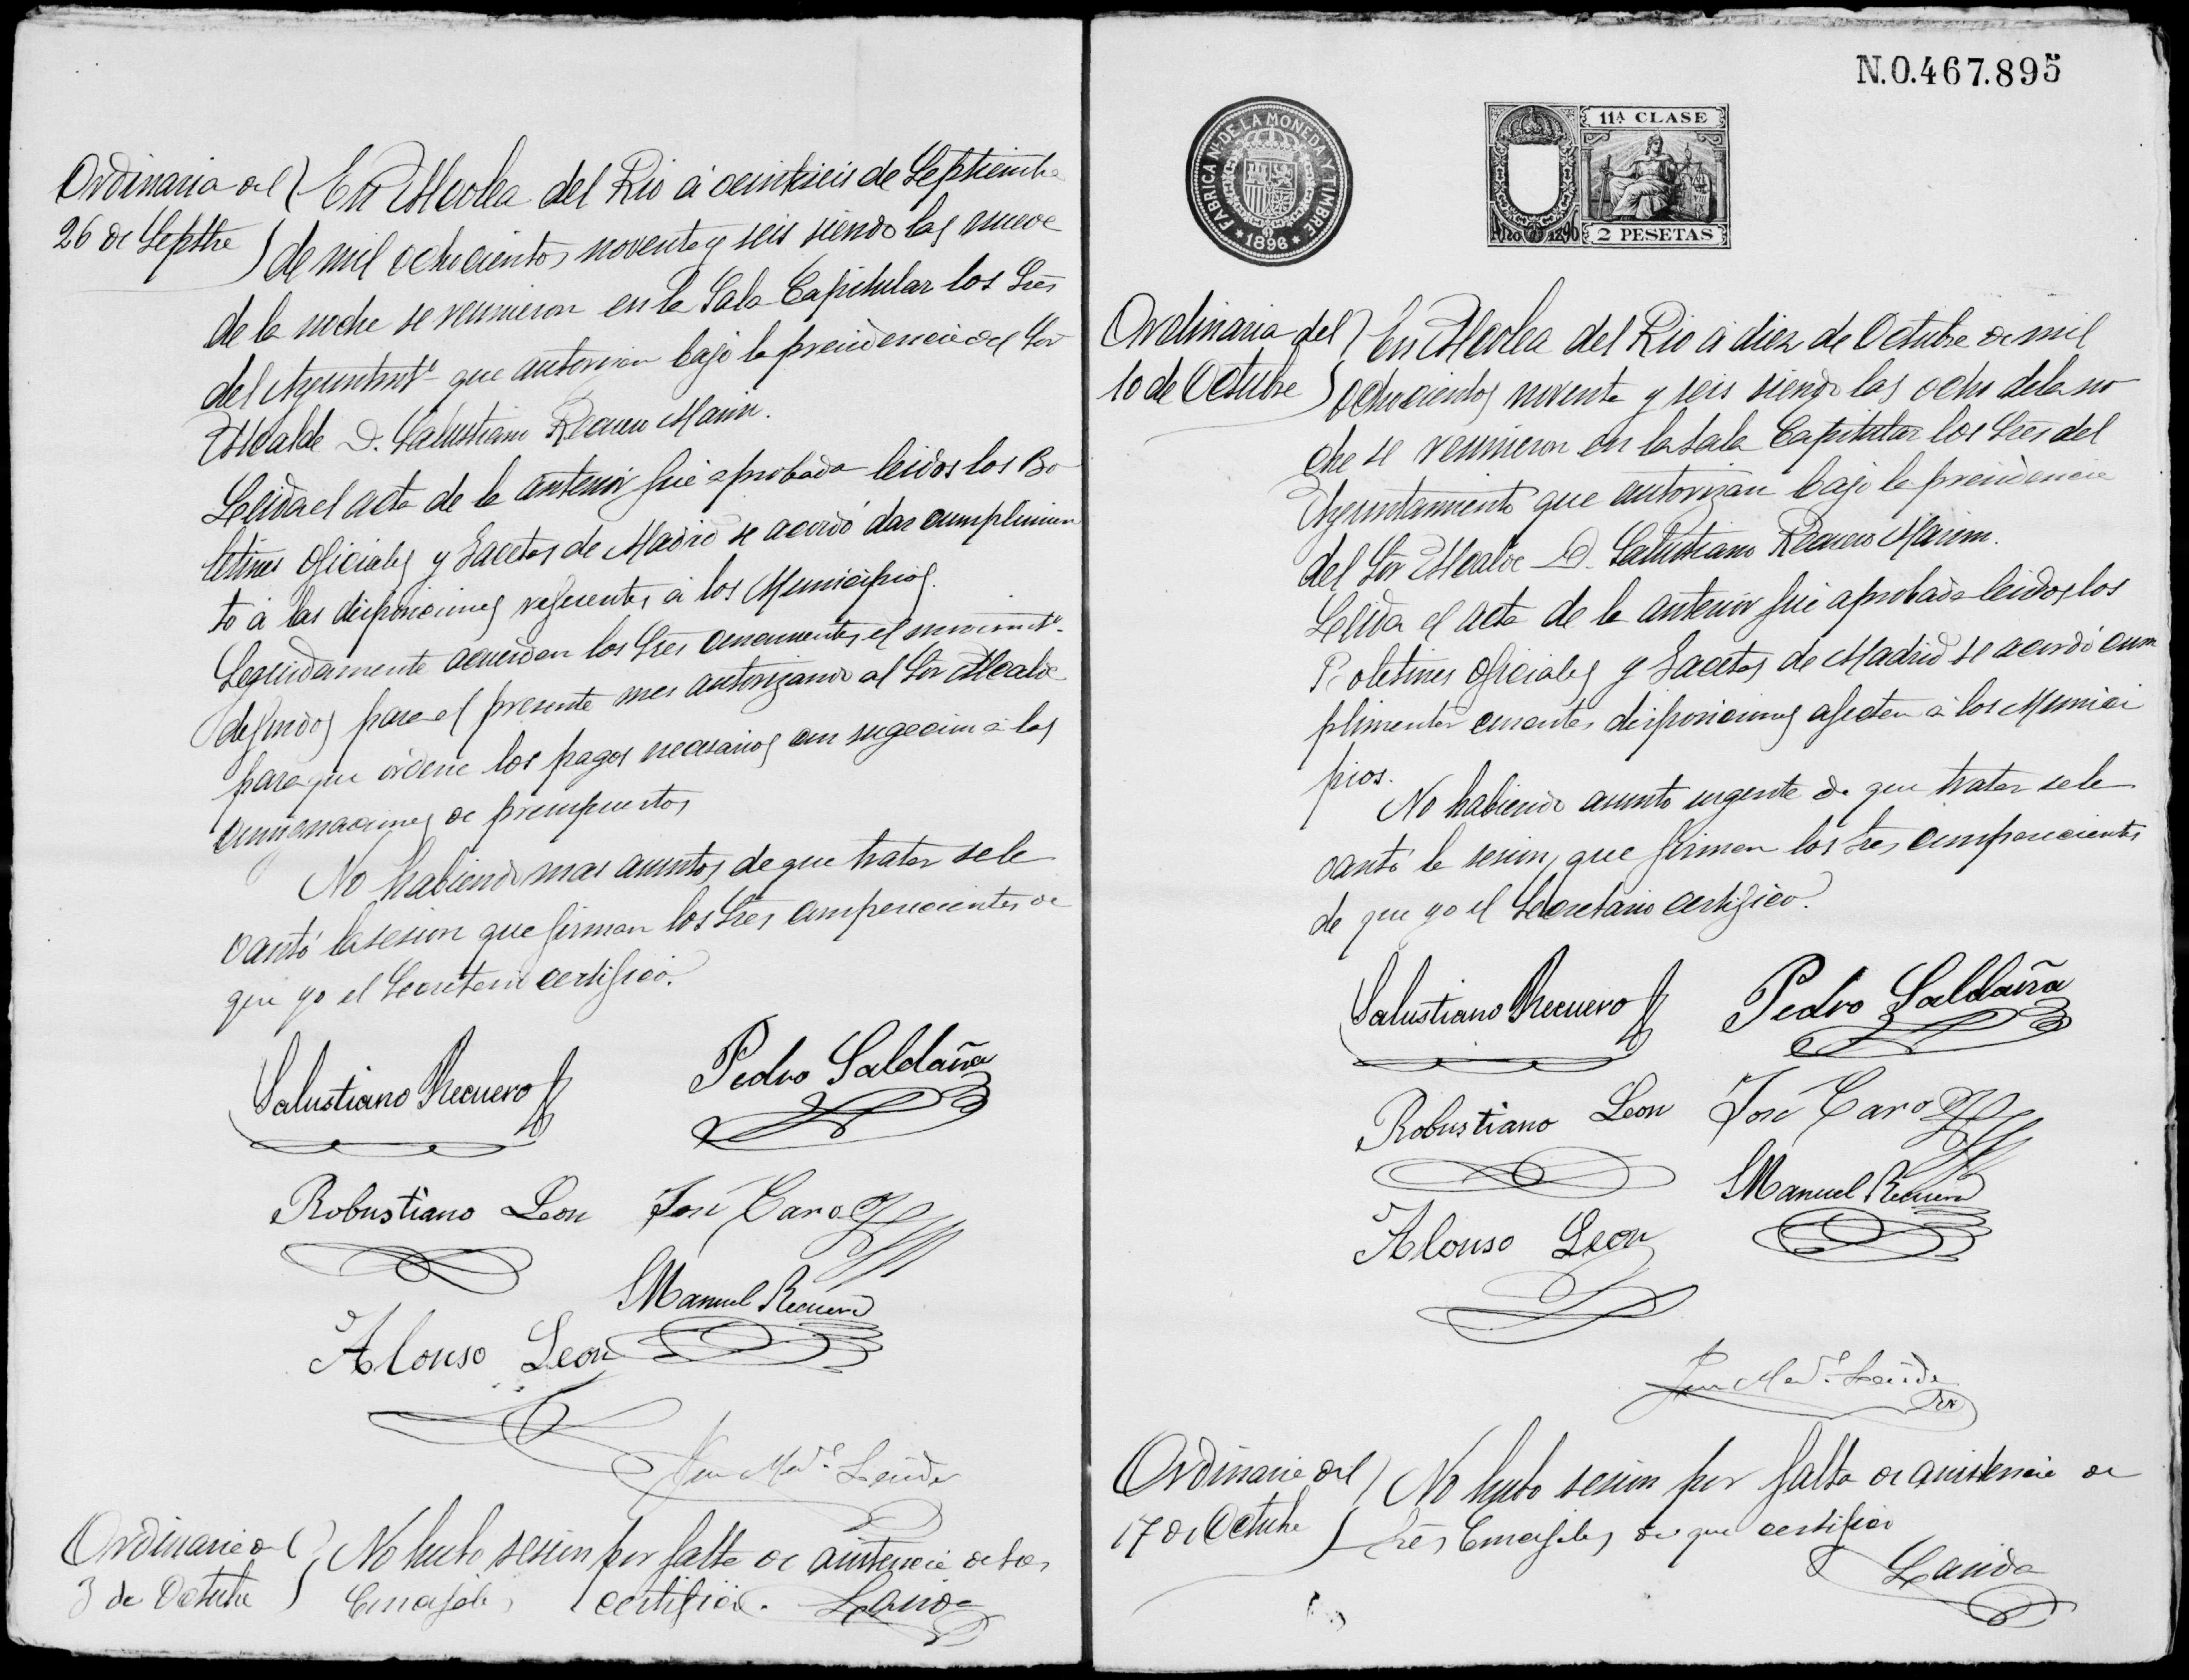 Ordinaria del
26 de Septbre
En Alcolea del Rio á veintiseis de Septiembre
de mil ochocientos noventa y seis siendo las nueve
de la noche se reunieron en la Sala Capitular los Sres
del Ayuntmto que autorizan bajo la presidencia del Sor
Alcalde D. Salustiano Recuero Marin.
Leida el acta de la anterior fué aprobada leidos los Bo
letines oficiales y Gacetas de Madrid se acordó dar cumplimien
to á las disposiciones referentes á los Municipios.
Seguidamente acuerdan los Sres concurrentes el movimto
de fondos para el presente mes autorizando al Sor Alcalde
para que ordene los pagos necesarios con sugecion á las
consignaciones de presupuestos
No habiendo mas asuntos de que tratar se le
vantó la sesion que firman los Sres comparecientes de
que yo el Secretario certifico.
Salustiano Recuero
Pedro Saldaña
Robustiano Leon
José Caro
Manuel Recuero
Alonso Leon
Ordinaria del
3 de Octubre
No hubo sesion por falta de asistencia de Sres
Concejales certifico.
N.0.467.895
FABRICA NL DE LA MONEDA Y TIMBRE
* 1896 *
11A CLASE
Año de 1896
2 PESETAS
Ordinaria del
10 de Octubre
En Alcolea del Rio á diez de Octubre de mil
ochocientos noventa y seis siendo las ocho de la no
che se reunieron en la Sala Capitular los Sres del
Ayuntamiento que autorizan bajo la presidencia
del Sor Alcalde D. Salustiano Recuero Marin.
Leida el acta de la anterior fué aprobada leidos los
Boletines oficiales y Gacetas de Madrid se acordó cum
plimentar cuantas disposiciones afecten á los Munici
pios.
No habiendo asunto urgente de que tratar se le
vantó la sesion, que firman los Sres comparecientes
de que yo el Secretario certifico.
Salustiano Recuero
Pedro Saldaña
Robustiano Leon
José Caro
Manuel Recuero
Alonso Leon
Ordinaria del
17 de Octubre
No hubo sesion por falta de asistencia de
Sres Concejales de que certifico